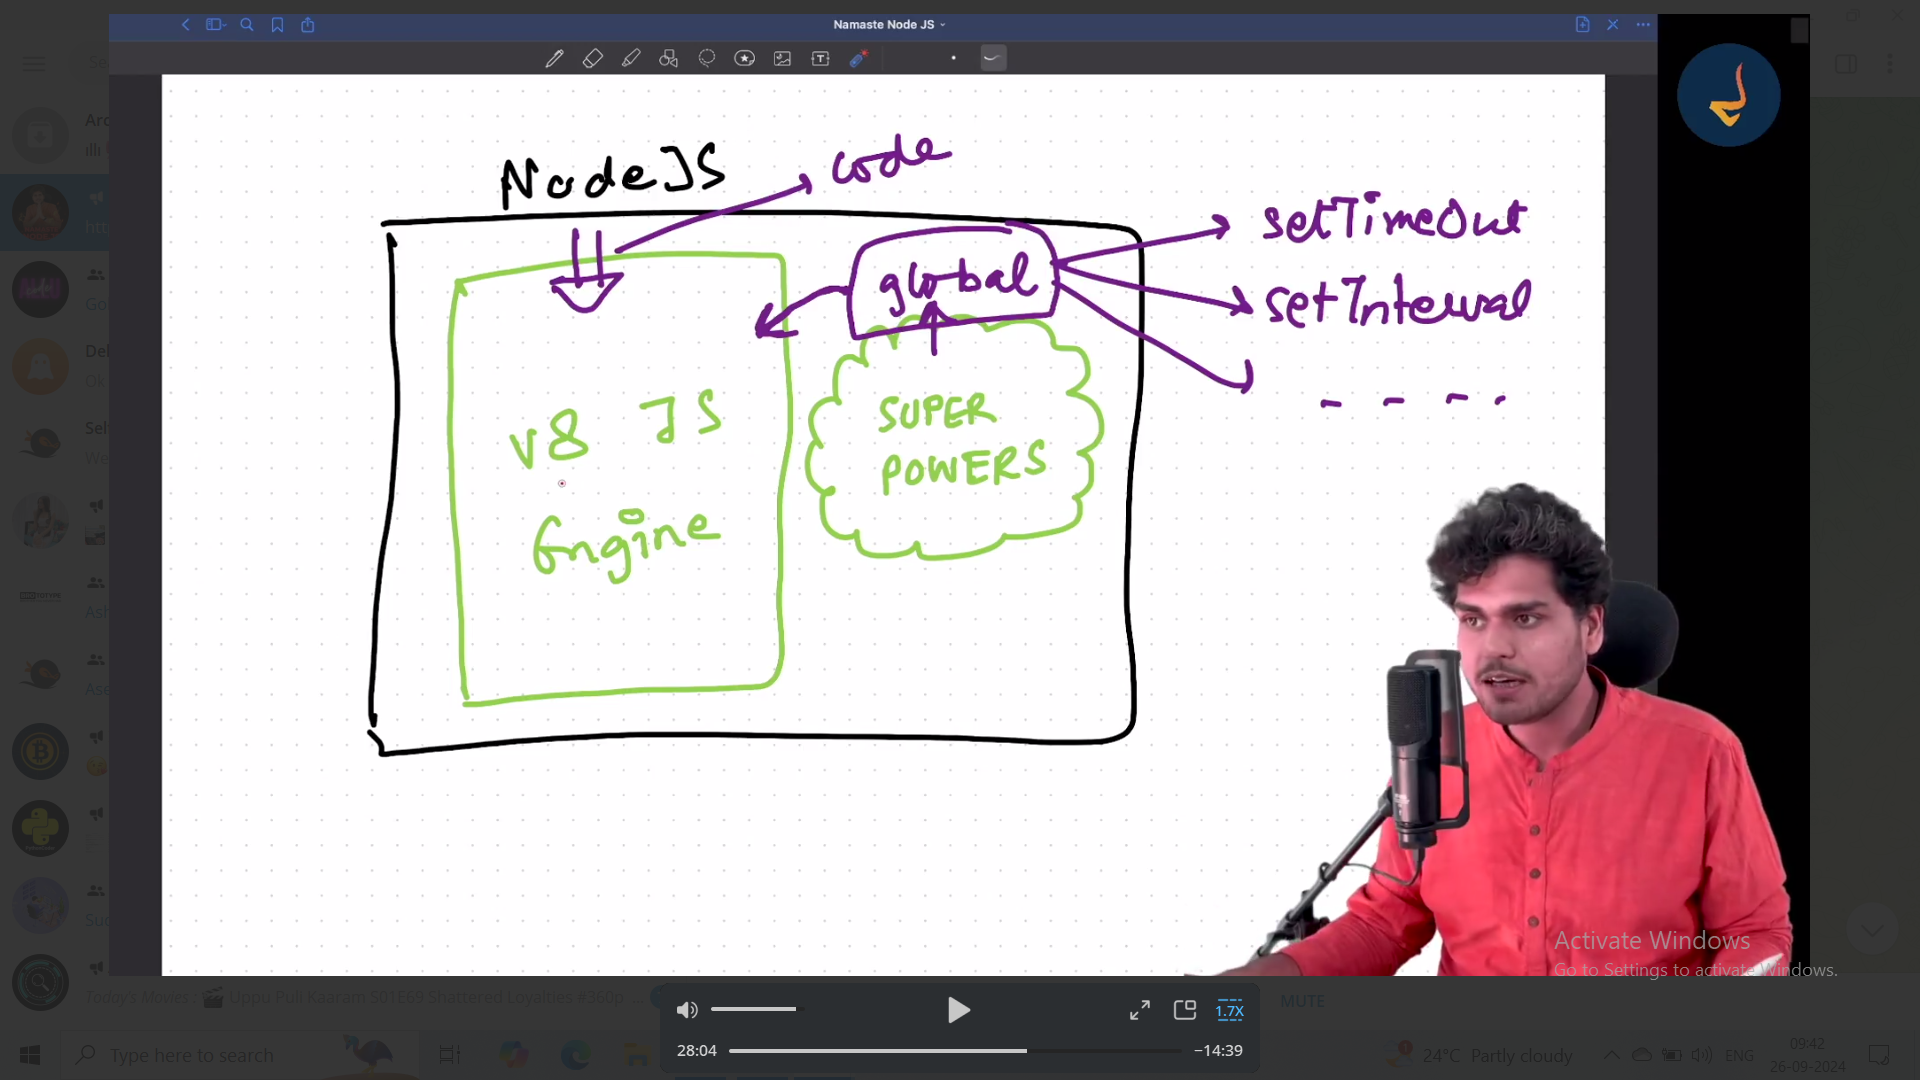 Namaste Node JS
Node JS
code
global
setTimeOut
setInterval
- - - -
V8 JS
Engine
SUPER
POWERS
Arc
htt
Go
Del
Ok
Sel
We
Ash
Ase
Suc
Activate Windows
Go to Settings to activate Windows.
Today's Movies : Uppu Pull Kaaram S01E69 Shattered Loyalties #360p ...
MUTE
1.7X
28:04
−14:39
Type here to search
1
24°C Partly cloudy
ENG
09:42
26-09-2024